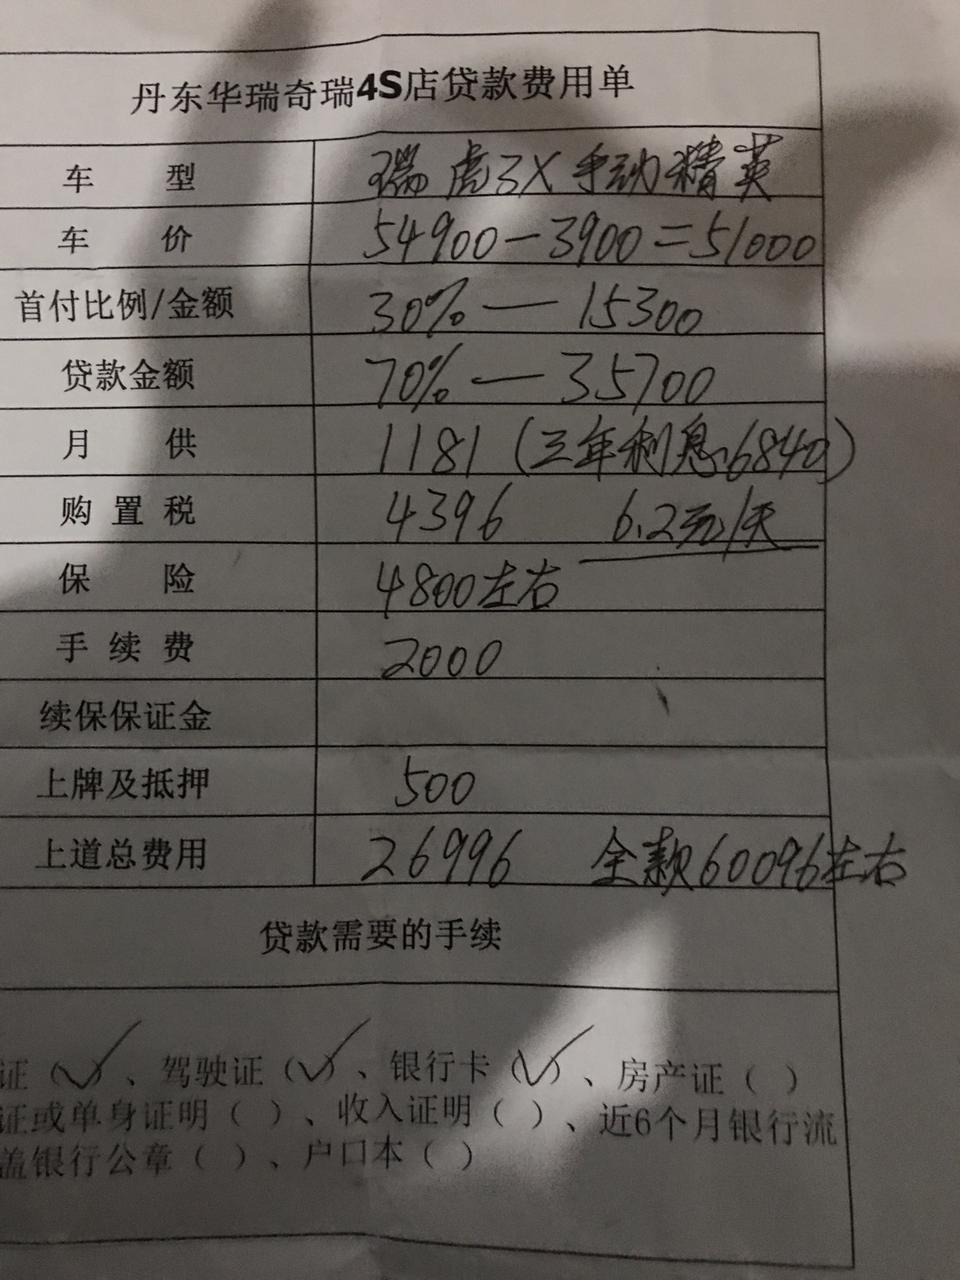 丹东华瑞奇瑞4S店贷款费用单
车 型 瑞虎3X手动精英
车 价 54900-3900=51000
首付比例/金额 30%—15300
贷款金额 70%—35700
月 供 1181(三年利息6840)
购置税 4396 6.2元/天
保 险 4800左右
手续费 2000
续保保证金
上牌及抵押 500
上道总费用 26996 全款60096左右
贷款需要的手续
证(✓)、驾驶证(✓)、银行卡(✓)、房产证( )
证或单身证明( )、收入证明( )、近6个月银行流
盖银行公章( )、户口本( )